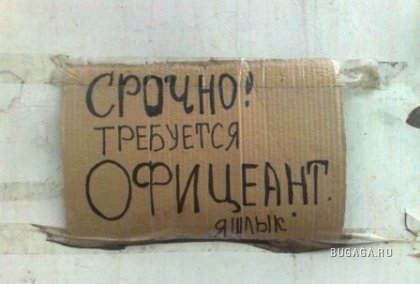 СРОЧНО!
ТРЕБУЕТСЯ
ОФИЦЕАНТ.
ЯШЛЫК.
BUGAGA.RU